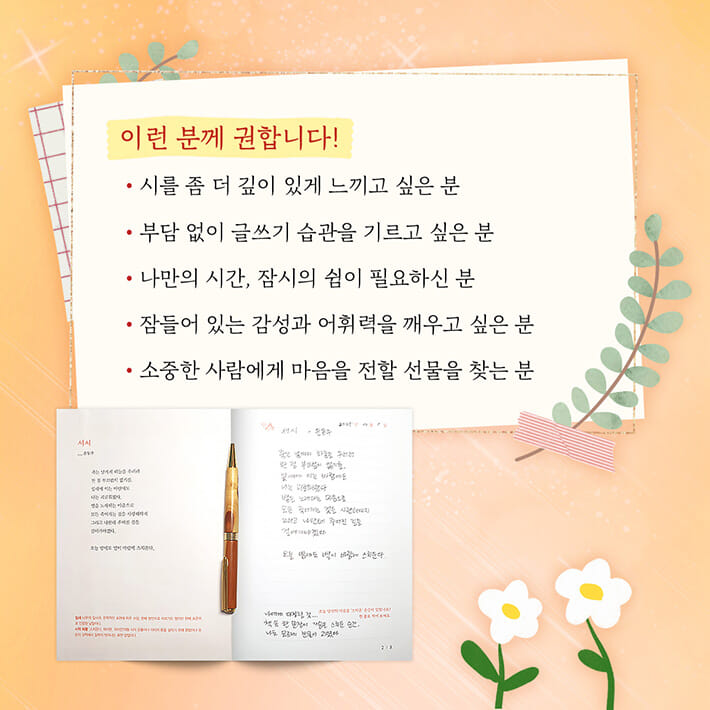 이런 분께 권합니다!
• 시를 좀 더 깊이 있게 느끼고 싶은 분
• 부담 없이 글쓰기 습관을 기르고 싶은 분
• 나만의 시간, 잠시의 쉼이 필요하신 분
• 잠들어 있는 감성과 어휘력을 깨우고 싶은 분
• 소중한 사람에게 마음을 전할 선물을 찾는 분
서시
윤동주
죽는 날까지 하늘을 우러러
한 점 부끄럼이 없기를,
잎새에 이는 바람에도
나는 괴로워했다.
별을 노래하는 마음으로
모든 죽어가는 것을 사랑해야지
그리고 나한테 주어진 길을
걸어가야겠다.
오늘 밤에도 별이 바람에 스치운다.
서시 - 윤동주
죽는 날까지 하늘을 우러러
한 점 부끄럼이 없기를,
잎새에 이는 바람에도
나는 괴로워했다
별을 노래하는 마음으로
모든 죽어가는 것을 사랑해야지
그리고 나한테 주어진 길을
걸어가야겠다
오늘 밤에도 별이 바람에 스치운다.
책 속 한 문장이 가슴을 스치는 순간,
2 / 3